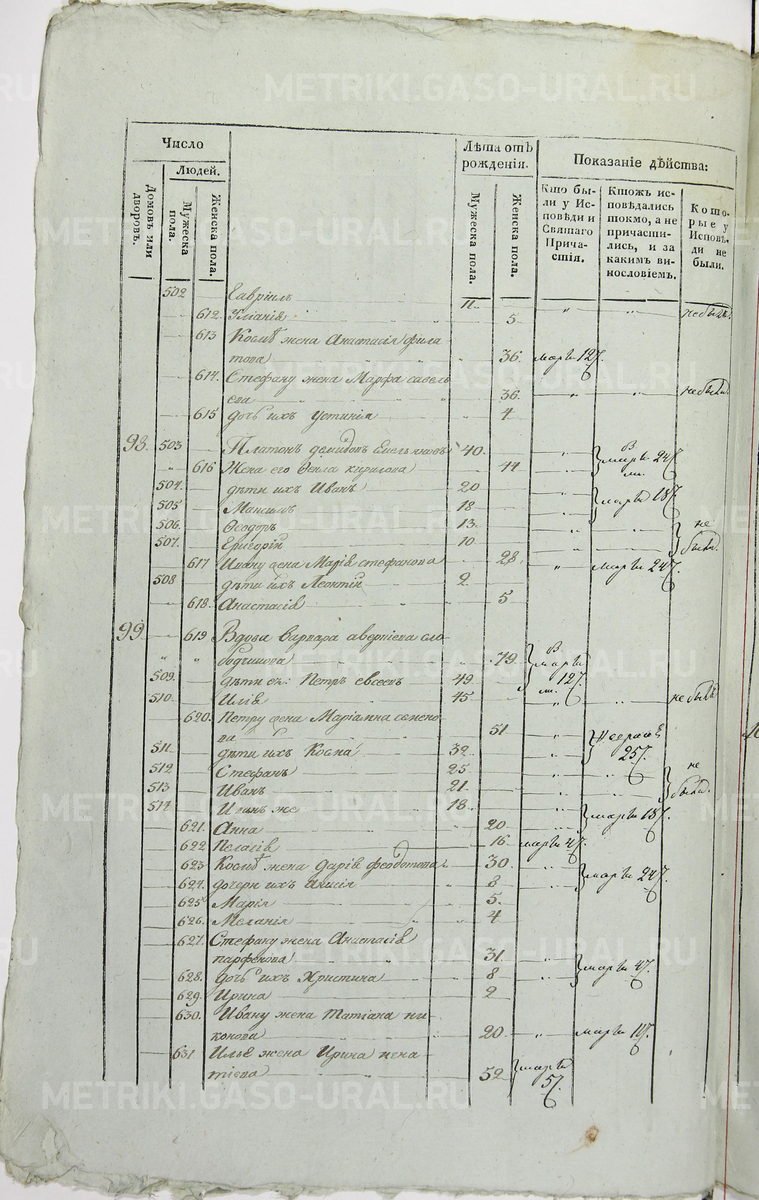 METRIKI.GASO-URAL.RU
Число
Людей.
Домовъ или дворовъ.
Мужеска пола.
Женска пола.
Лѣта отъ рожденія.
Мужеска пола.
Женска пола.
Показаніе дѣйства:
Кто были у Исповѣди и Святаго Причастія.
Ктожъ исповѣдались токмо, а не причастились, и за какимъ винословіемъ.
Которые у Исповѣди не были.
502 Гавріилъ 11
612 Уліанія 5 не были
613 Космѣ жена Анастасія Фила
това 36 марта 12
614 Стефану жена Марфа савель
ева 36 не были
615 дочь ихъ Устинія 4
98 503 Платонъ демидовъ Емельяновъ 40
616 Жена его Фекла кирилова 44 марта 24
504 дѣти ихъ Иванъ 20
505 Мануилъ 18 марта 18
506 Феодоръ 13 не
507 Григорій 10 были
617 Ивану жена Марія стефанова 28 марта 24
508 дѣти ихъ Леонтій 2
618 Анастасія 5
99 619 Вдова Варвара аверкіева сло
бодчикова 79 марта
509 дѣти ея: Петръ евсеевъ 49 12
510 Илія 45 не были
620 Петру жена Маріамна семено
ва 51 февраля
511 дѣти ихъ Косма 32 25
512 Стефанъ 25 не
513 Иванъ 21 были
514 Иванъ же 18 марта 18
621 Анна 20
622 Пелагія 16 марта 4
623 Космѣ жена дарія феодотова 30 марта 24
624 дочери ихъ Анисія 8
625 Марія 5
626 Меланія 4
627 Стефану жена Анастасія
парфенова 31 марта 4
628 дочь ихъ Христина 8
629 Ирина 2
630 Ивану жена Татіана ни
конова 20 марта
631 Ильѣ жена Ирина игна
тіева 52 марта
5